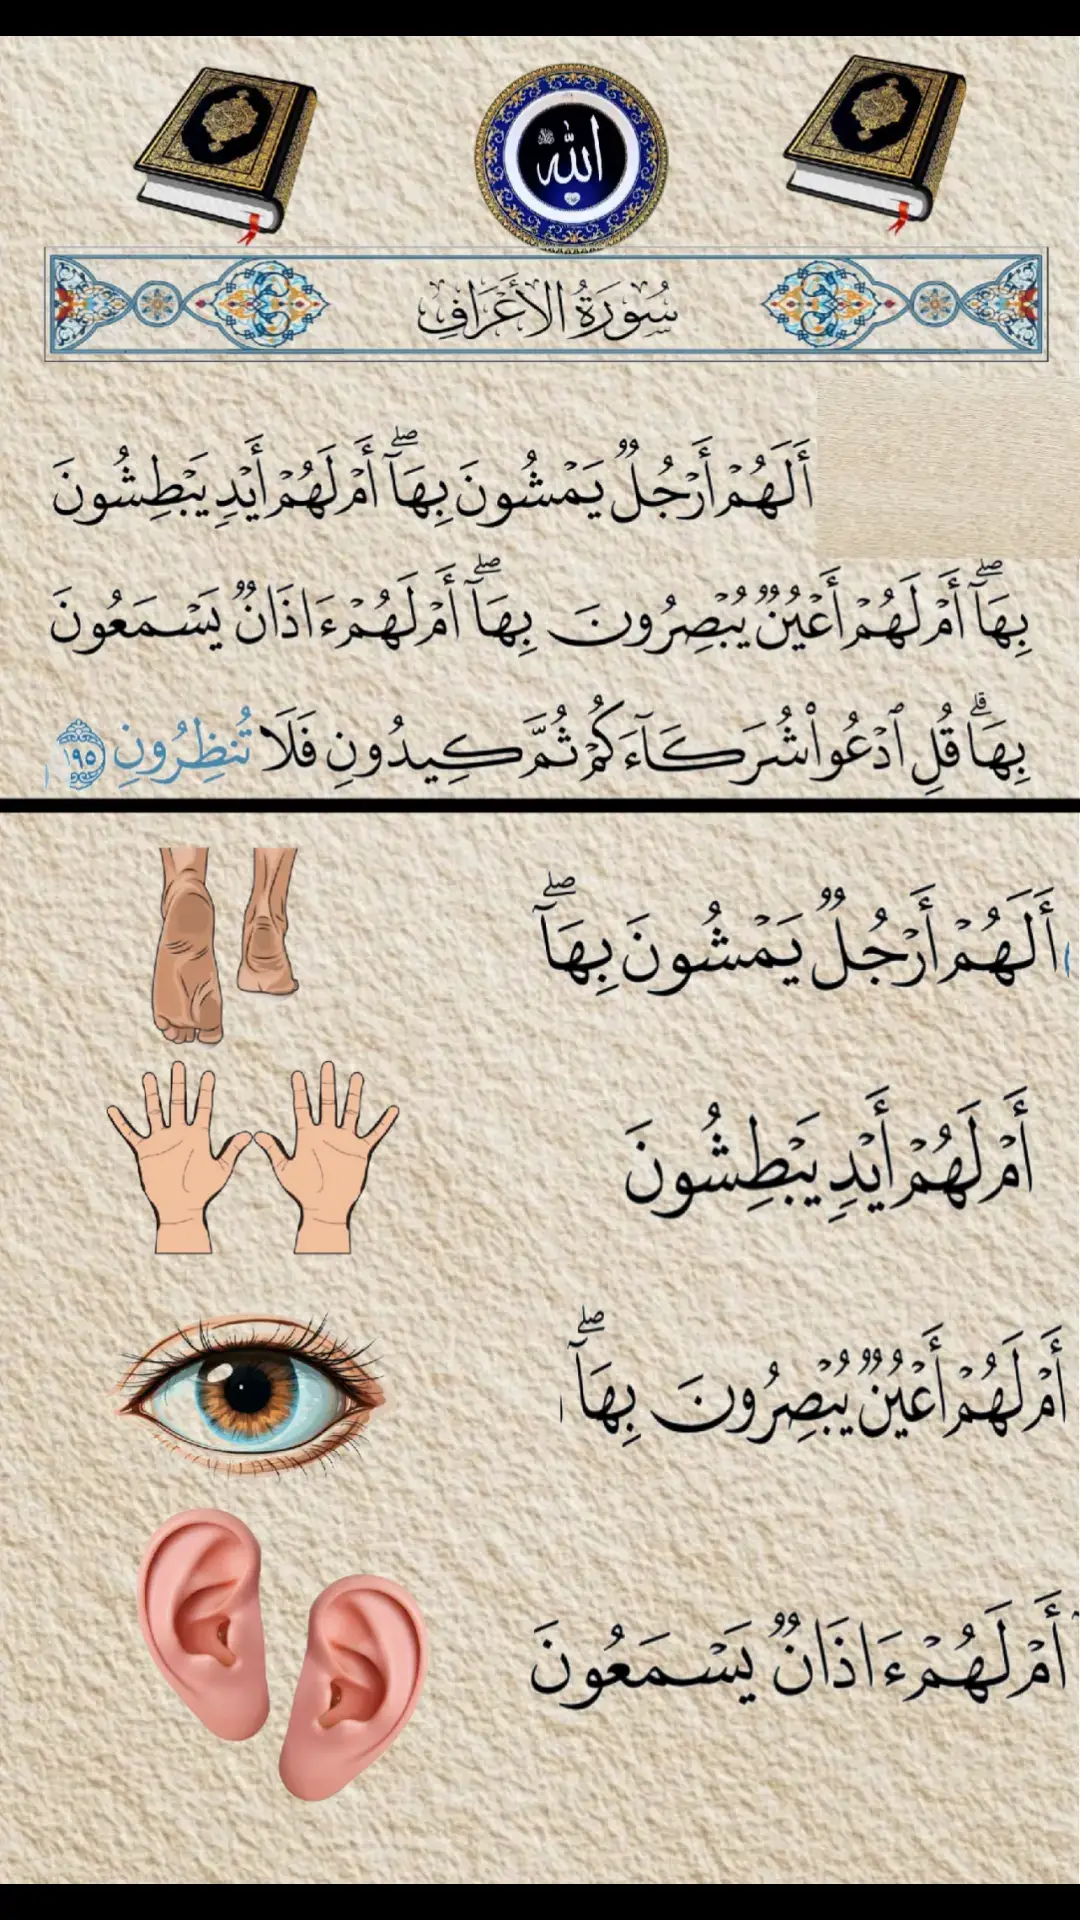 الله
سُورَةُ الأَعْرَافِ
أَلَهُمۡ أَرۡجُلٞ يَمۡشُونَ بِهَآۖ أَمۡ لَهُمۡ أَيۡدٖ يَبۡطِشُونَ
بِهَآۖ أَمۡ لَهُمۡ أَعۡيُنٞ يُبۡصِرُونَ بِهَآۖ أَمۡ لَهُمۡ ءَاذَانٞ يَسۡمَعُونَ
بِهَاۗ قُلِ ٱدۡعُواْ شُرَكَآءَكُمۡ ثُمَّ كِيدُونِ فَلَا تُنظِرُونِ ١٩٥
أَلَهُمۡ أَرۡجُلٞ يَمۡشُونَ بِهَآۖ
أَمۡ لَهُمۡ أَيۡدٖ يَبۡطِشُونَ
أَمۡ لَهُمۡ أَعۡيُنٞ يُبۡصِرُونَ بِهَآۖ
أَمۡ لَهُمۡ ءَاذَانٞ يَسۡمَعُونَ